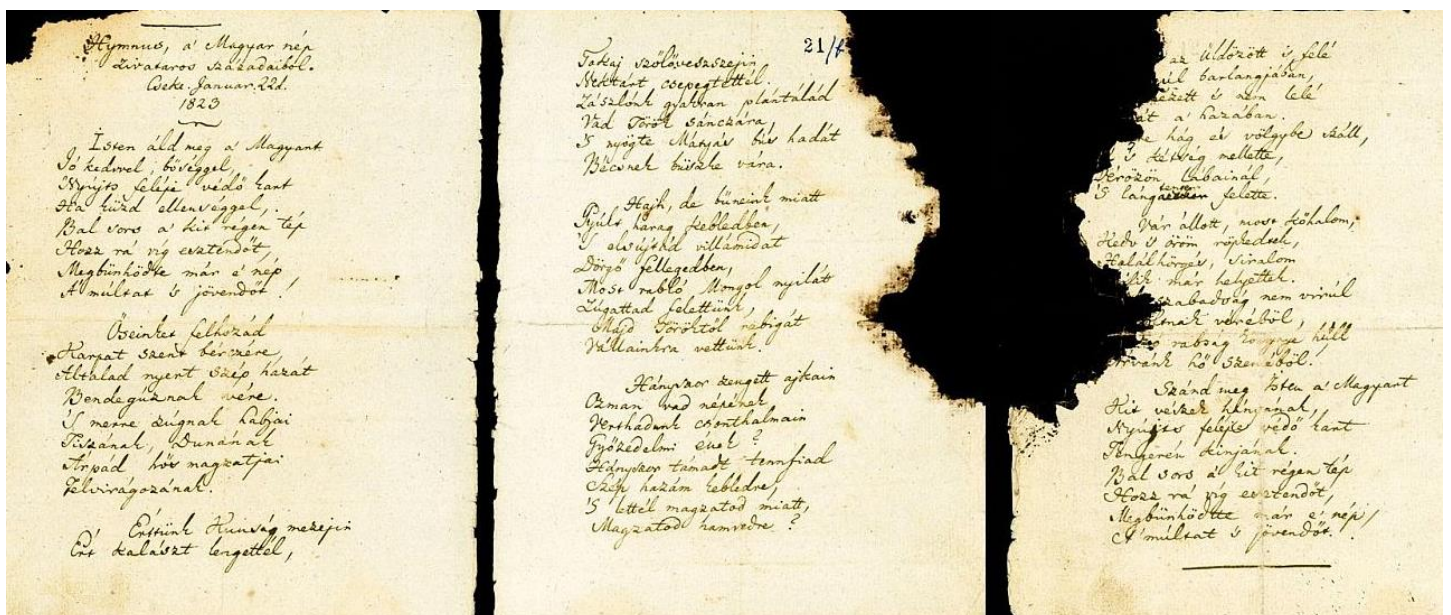 Hymnus, a' Magyar nép
zivataros századaiból.
Cseke Januar. 22d.
1823
Isten áld meg a' Magyart
Jó kedvvel, bőséggel,
Nyújts feléje védő kart
Ha küzd ellenséggel,
Bal sors a' kit régen tép
Hozz rá víg esztendőt,
Megbűnhődte már e' nép
A' múltat 's jövendőt!
Őseinket felhozád
Kárpát szent bérczére,
Általad nyert szép hazát
Bendegúznak vére.
'S merre zúgnak habjai
Tiszának, Dunának
Árpád hős magzatjai
Felvirágozának.
Értünk Kunság mezején
Ért kalászt lengettél,
21/f
Tokaj szőlővesszejin
Nektárt csepegtettél.
Zászlónk gyakran plántálád
Vad Török sánczára,
'S nyögte Mátyás bús hadát
Bécsnek büszke vára.
Hajh, de bűneink miatt
Gyúlt harag kebledben,
'S elsújtád villámidat
Dörgő fellegedben,
Most rabló Mongol nyilát
Zúgattad felettünk,
Majd Töröktől rabigát
Vállainkra vettünk.
Hányszor zengett ajkain
Ozman vad népének
Vert hadunk csonthalmain
Győzedelmi ének?
Hányszor támadt tennfiad
Szép hazám kebledre,
'S lettél magzatod miatt,
Magzatod hamvedre?
az üldözött 's felé
barlangjában,
's nem lelé
a' hazában.
hág és völgybe száll,
's kétség mellette,
Vérözön lábainál,
'S lángtenger felette.
Vár állott, most kőhalom,
Kedv 's öröm röpkedtek,
Halálhörgés, siralom
már helyettek.
szabadság nem virúl
véréből,
rabság könnye hull
hő szeméből.
Szánd meg Isten a' Magyart
Kit vészek hányának,
Nyújts feléje védő kart
Tengerén kínjának.
Bal sors a' kit régen tép
Hozz rá víg esztendőt,
Megbűnhődte már e' nép
A' múltat 's jövendőt!